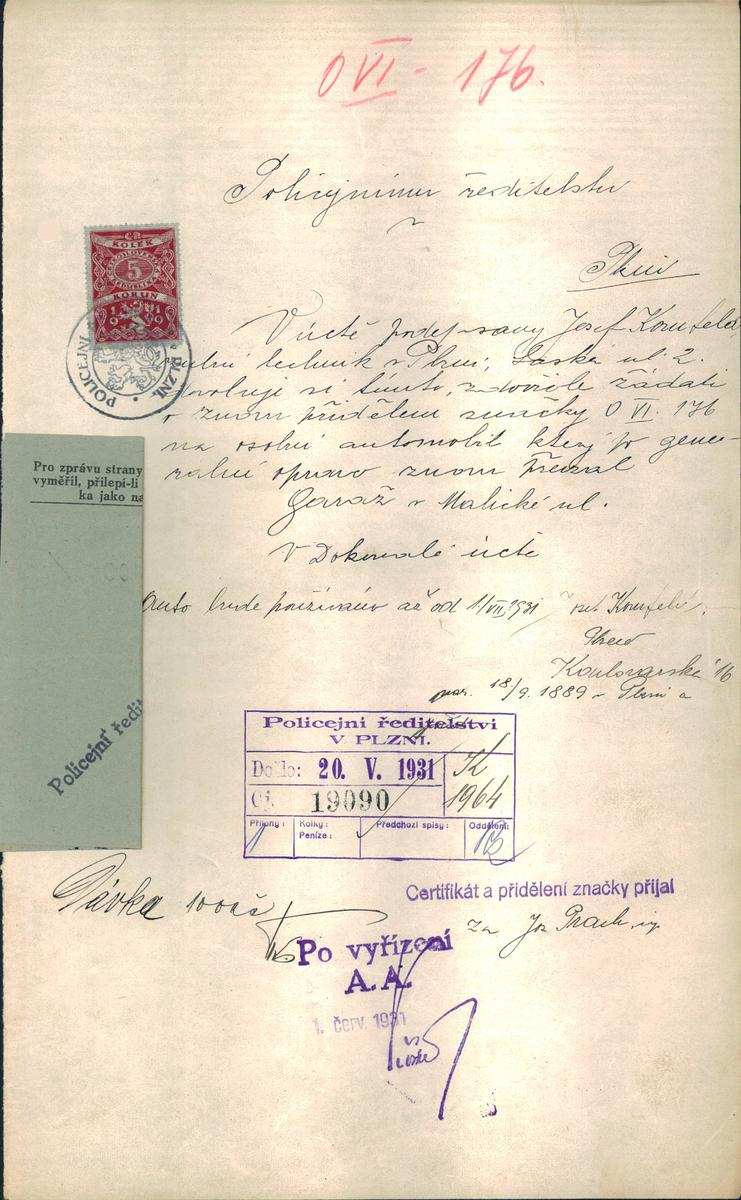 O VI - 176.
Policejnímu ředitelství
v
Plzni
ČR
KOLEK
5
KORUN
POLICEJNÍ
V PLZNI.
V úctě podepsaný Josef
technik v Plzni, ul. 2.
dovoluji si tímto, zdvořile žádati
o znovu přidělení značky O VI. 176
na osobní automobil který po gene-
rální opravě znovu
Garáž v Malické ul.
V Dokonalé úctě
Pro zprávu strany
vyměřil, přilepí-li
ka jako na
Auto bude používáno až od 1/VII. 1931
Karlovarská 16
nar. 18/9. 1889 v Plzni
Policejní ředi
Policejní ředitelství
V PLZNI.
Došlo: 20. V. 1931
K
1964
Čj. 19090
Přílohy:
Kolky:
Peníze:
Předchozí spisy:
Oddělení:
1
Dávka 100 Kč
Certifikát a přidělení značky přijal
za Jos
Po vyřízení
A.A.
1. červ. 1931